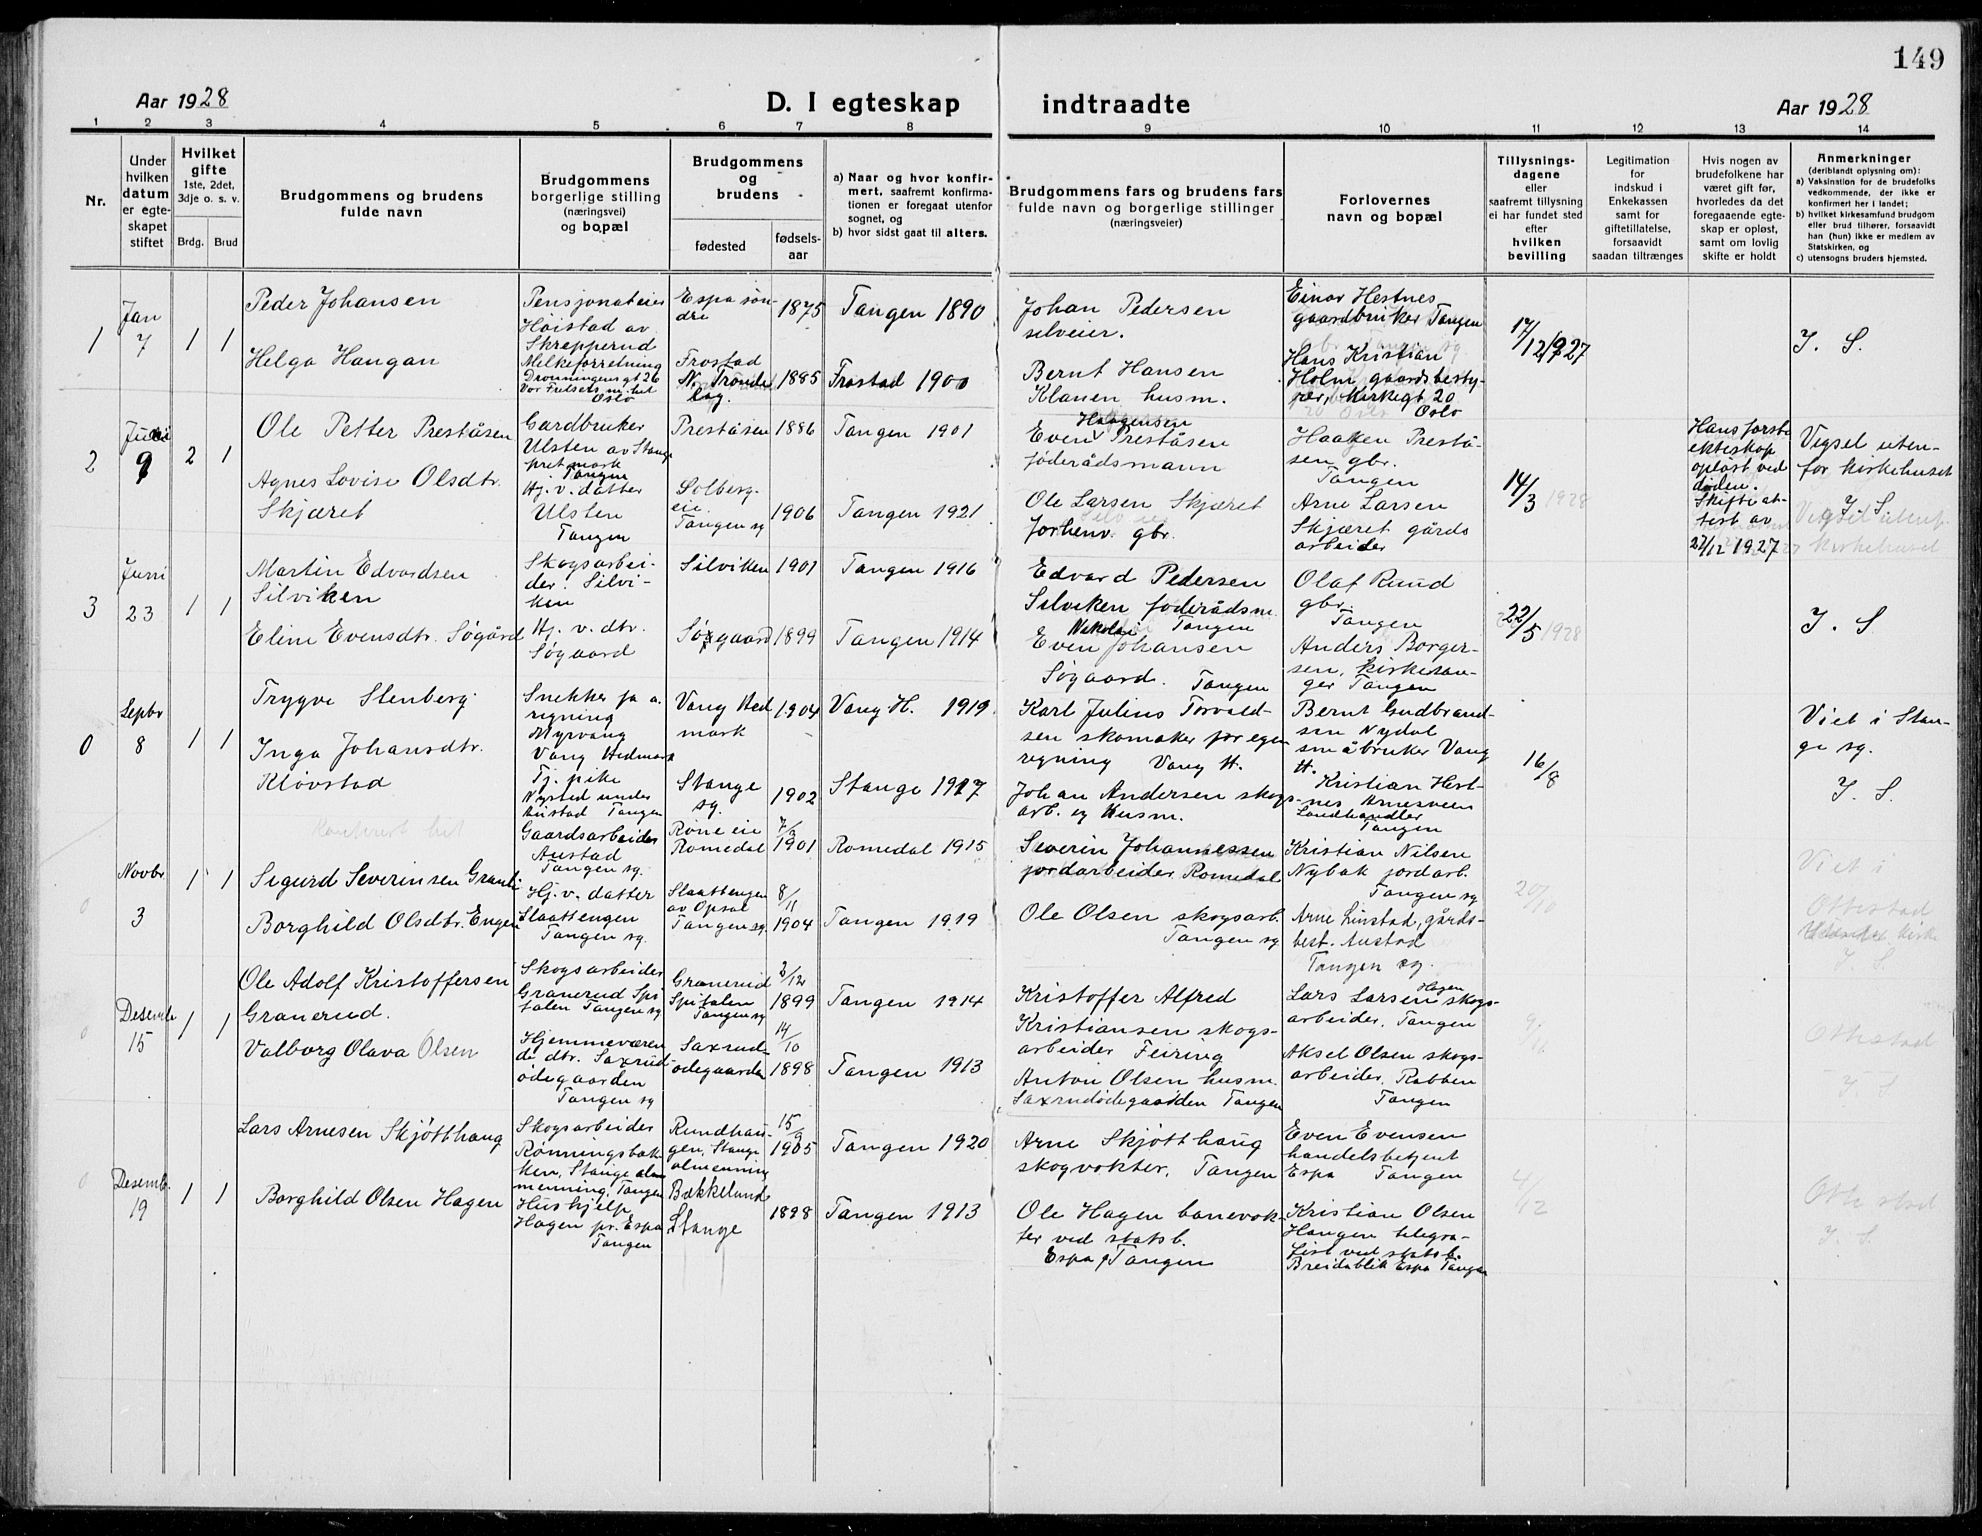 149
Aar 1928
D. I egteskap
indtraadte
Aar 1928
1 2 3 4 5 6 7 8 9 10 11 12 13 14
Nr.
Under
hvilken
datum
er egte-
skapet
stiftet
Hvilket
gifte
1ste, 2det,
3dje o. s. v.
Brdg. Brud
Brudgommens og brudens
fulde navn
Brudgommens
borgerlige stilling
(næringsvei)
og bopæl
Brudgommens
og
brudens
fødested
fødsels-
aar
a) Naar og hvor konfir-
mert, saafremt konfirma-
tionen er foregaat utenfor
sognet, og
b) hvor sidst gaat til alters.
Brudgommens fars og brudens fars
fulde navn og borgerlige stillinger
(næringsveier)
Forlovernes
navn og bopæl
Tillysnings-
dagene
eller
saafremt tillysning
ei har fundet sted
efter
hvilken
bevilling
Legitimation
for
indskud i
Enkekassen
samt for
giftetillatelse,
forsaavidt
saadan tiltrænges
Hvis nogen av
brudefolkene har
været gift før,
hvorledes da det
foregaaende egte-
skap er opløst,
samt om lovlig
skifte er holdt
Anmerkninger
(deriblandt oplysning om):
a) Vaksination for de brudefolks
vedkommende, der ikke er
konfirmert her i landet;
b) hvilket kirkesamfund brudgom
eller brud tilhører, forsaavidt
han (hun) ikke er medlem av
Statskirken, og
c) utensogns bruders hjemsted.
1
Jan
7
1 1
Peder Johansen
Helga Haugan
Pensjonateier
Høistad av
Skrepperud
Melkeforretning
Dronningensgt 26
Oslo
Espa søn-
dre
1875
Tangen 1890
Frostad
N. Trønde
lag.
1885
Frostad 1900
Johan Pedersen
selveier.
Bernt Hansen
Klanen husm.
Einar Hestnes
gaardbruker Tangen
Hans Kristian
Holm gaardsbesty-
rer, Kirkegt 20
Oslo
17/12 1927
I. S.
2
Juni
9
2 1
Ole Petter Preståsen
Agnes Lovise Olsdtr.
Skjæret
Gardbruker
Ulsten av Stange
pret.mark
Tangen
Hj. v. datter
Ulsten
Tangen
Preståsen
1886
Tangen 1901
Solberg-
eie
Tangen sg
1906
Tangen 1921
Haagensen
Even Preståsen
føderådsmann
Ole Larsen Skjæret
forhenv. gbr.
Haaken Prestå-
sen gbr.
Tangen
Arne Larsen
Skjæret gårds
arbeider
14/3 1928
Hans første
ekteskap
opløst ved
døden.
Skifteat-
test av
27/12 1927
Vigsel uten-
for kirkehuset
I. S.
3
Juni
23
1 1
Martin Edvardsen
Silviken
Eline Evensdtr. Søgård
Skogsarbei-
der. Silvi-
ken
Hj. v. dtr.
Søgaard
Silviken
1901
Tangen 1916
Søgaard
1899
Tangen 1914
Edvard Pedersen
Silviken føderådsm.
Tangen
Nikolai
Even Johansen
Søgaard. Tangen
Olaf Ruud
gbr.
Tangen
Anders Borger-
sen, kirkesan-
ger Tangen
22/5 1928
I. S.
0
Septbr
8
1 1
Trygve Stenberg
Inga Johansdtr.
Kløvstad
Snekker for e.
regning
Myrvang
Vang Hedmark
Tj. pike
Nysted under
Austad Tangen
Vang Hed
mark
1904
Vang H. 1919
Stange
sg.
1902
Stange 1917
Karl Julius Torvald-
sen skomaker for egen
regning Vang H.
Johan Andersen skogs-
arb. og husm.
Bernt Gudbrand-
sen Nydal
småbruker Vang
H.
Kristian Hest-
nes Arnesveen
Landhandler
Tangen
16/8
Viet i Stan-
ge sg.
I. S.
0
Novbr
3
1 1
Sigurd Severinsen Granli
Borghild Olsdtr. Engen
Gaardsarbeider
Austad
Tangen sg.
Hj. v. datter
Slaattengen
Tangen sg.
Røne eie
Romedal
1901
Romedal 1915
Slaattengen
av Opsal
Tangen sg.
8/11
1904
Tangen 1919
Severin Johannessen
jordarbeider Romedal
Ole Olsen skogsarb.
Tangen sg
Kristian Nilsen
Nybak jordarb.
Tangen sg
Arne Linstad, gårds-
best. Austad
Tangen sg.
20/10
Viet i
Ottestad
kirke
I. S.
0
Desemb
15
1 1
Ole Adolf Kristoffersen
Granerud.
Valborg Olava Olsen
Skogsarbeider
Granerud Spi
talen Tangen sg
Hjemmeværen
de dtr. Saxrud-
ødegaarden
Tangen sg
Granerud
Spitalen
Tangen sg
2/12
1899
Tangen 1914
Saxrud-
ødegaarden
14/10
1898
Tangen 1913
Kristoffer Alfred
Kristiansen skogs-
arbeider Feiring
Anton Olsen husm.
Saxrudødegaarden Tangen
Lars Larsen Hagen skogs-
arbeider, Tangen
Aksel Olsen skogs-
arbeider, Rabben
Tangen
Ottestad
I. S.
0
Desemb.
19
1 1
Lars Arnesen Skjøtthaug
Borghild Olsen Hagen
Skogsarbeider
Rønningsbak-
ken, Stange alm
menning, Tangen
Hushjelp
Hagen pr. Espa
Tangen
Rundhau-
gen, Stange
almenning
15/9
1905
Tangen 1920
Bakkelund
Stange
1898
Tangen 1913
Arne Skjøtthaug
skogvokter, Tangen
Ole Hagen banevok-
ter ved statsb.
Espa, Tangen
Even Evensen
handelsbetjent
Espa Tangen
Kristian Olsen
Haugen telegra-
fist ved statsb.
Breidablik Espa Tangen
4/12
Ottestad
I. S.